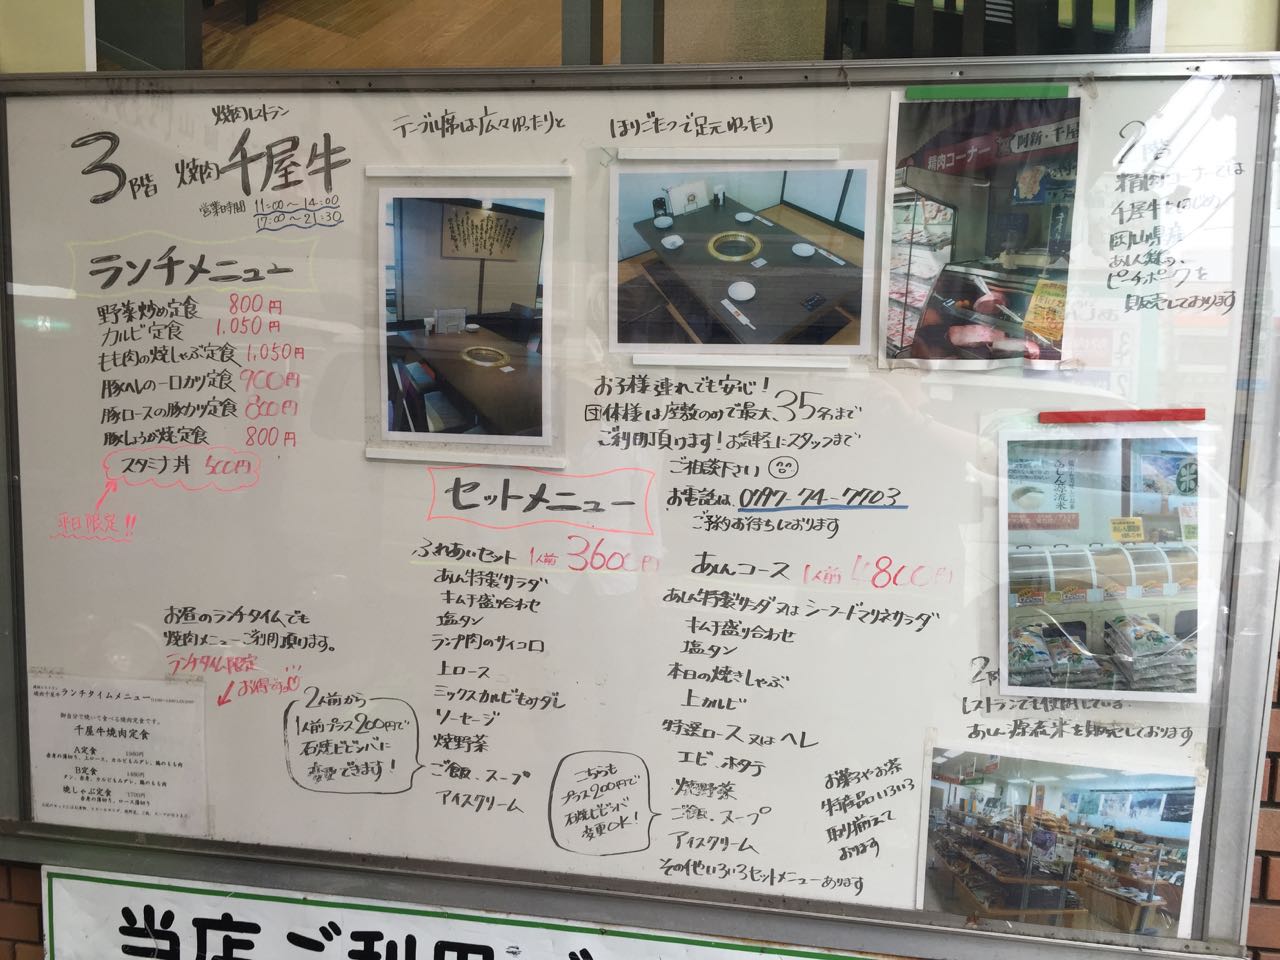 3階
焼肉レストラン
焼肉 千屋牛
営業時間 11:00〜14:00
17:00〜21:30
ランチメニュー
野菜炒め定食 800円
カルビ定食 1,050円
もも肉の焼しゃぶ定食 1,050円
豚ヘレの一口カツ定食 900円
豚ロースの豚カツ定食 800円
豚しょうが焼定食 800円
スタミナ丼 500円
平日限定!!
お昼のランチタイムでも
焼肉メニューご利用頂けます。
ランチタイム限定
お得です♡
ランチタイムメニュー
御自分で焼いて食べる焼肉定食です。
千屋牛焼肉定食
A定食 1980円
B定食 1480円
焼しゃぶ定食 1700円
赤身の薄切り、ロース薄切り
テーブル席は広々ゆったりと
ほりごたつで足元ゆったり
お子様連れでも安心!
団体様は座敷のみで最大、35名まで
ご利用頂けます!お気軽にスタッフまで
ご相談下さい
お電話は、0797-74-7703
ご予約お待ちしております
セットメニュー
ふれあいセット 1人前 3600円
あしん特製サラダ
キムチ盛り合わせ
塩タン
ランプ肉のサイコロ
上ロース
ミックスカルビもやダレ
ソーセージ
焼野菜
ご飯、スープ
アイスクリーム
2人前から
1人前プラス200円で
石焼ビビンバに
変更できます!
あしんコース 1人前 4800円
あしん特製サラダ又はシーフードマリネサラダ
キムチ盛り合わせ
塩タン
本日の焼きしゃぶ
上カルビ
特選ロース又はヘレ
エビ、ホタテ
焼野菜
ご飯、スープ
アイスクリーム
その他いろいろセットメニューあります
こちらも
プラス200円で
石焼ビビンバ
変更OK!
精肉コーナー
阿新・千屋
2階
精肉コーナーでは
千屋牛をはじめ
岡山県産
あしん鶏、
ピーチポークを
販売しております
あしん源流米
米
2階
レストランでも使用している
あしん源流米を販売しております
お菓子やお茶
特産品いろいろ
取り揃えて
おります
当店ご利用